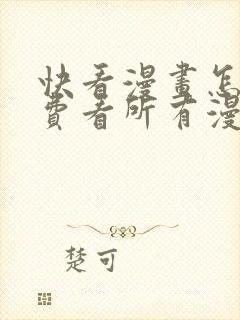 快看漫畫怎
費看所有漫
楚可